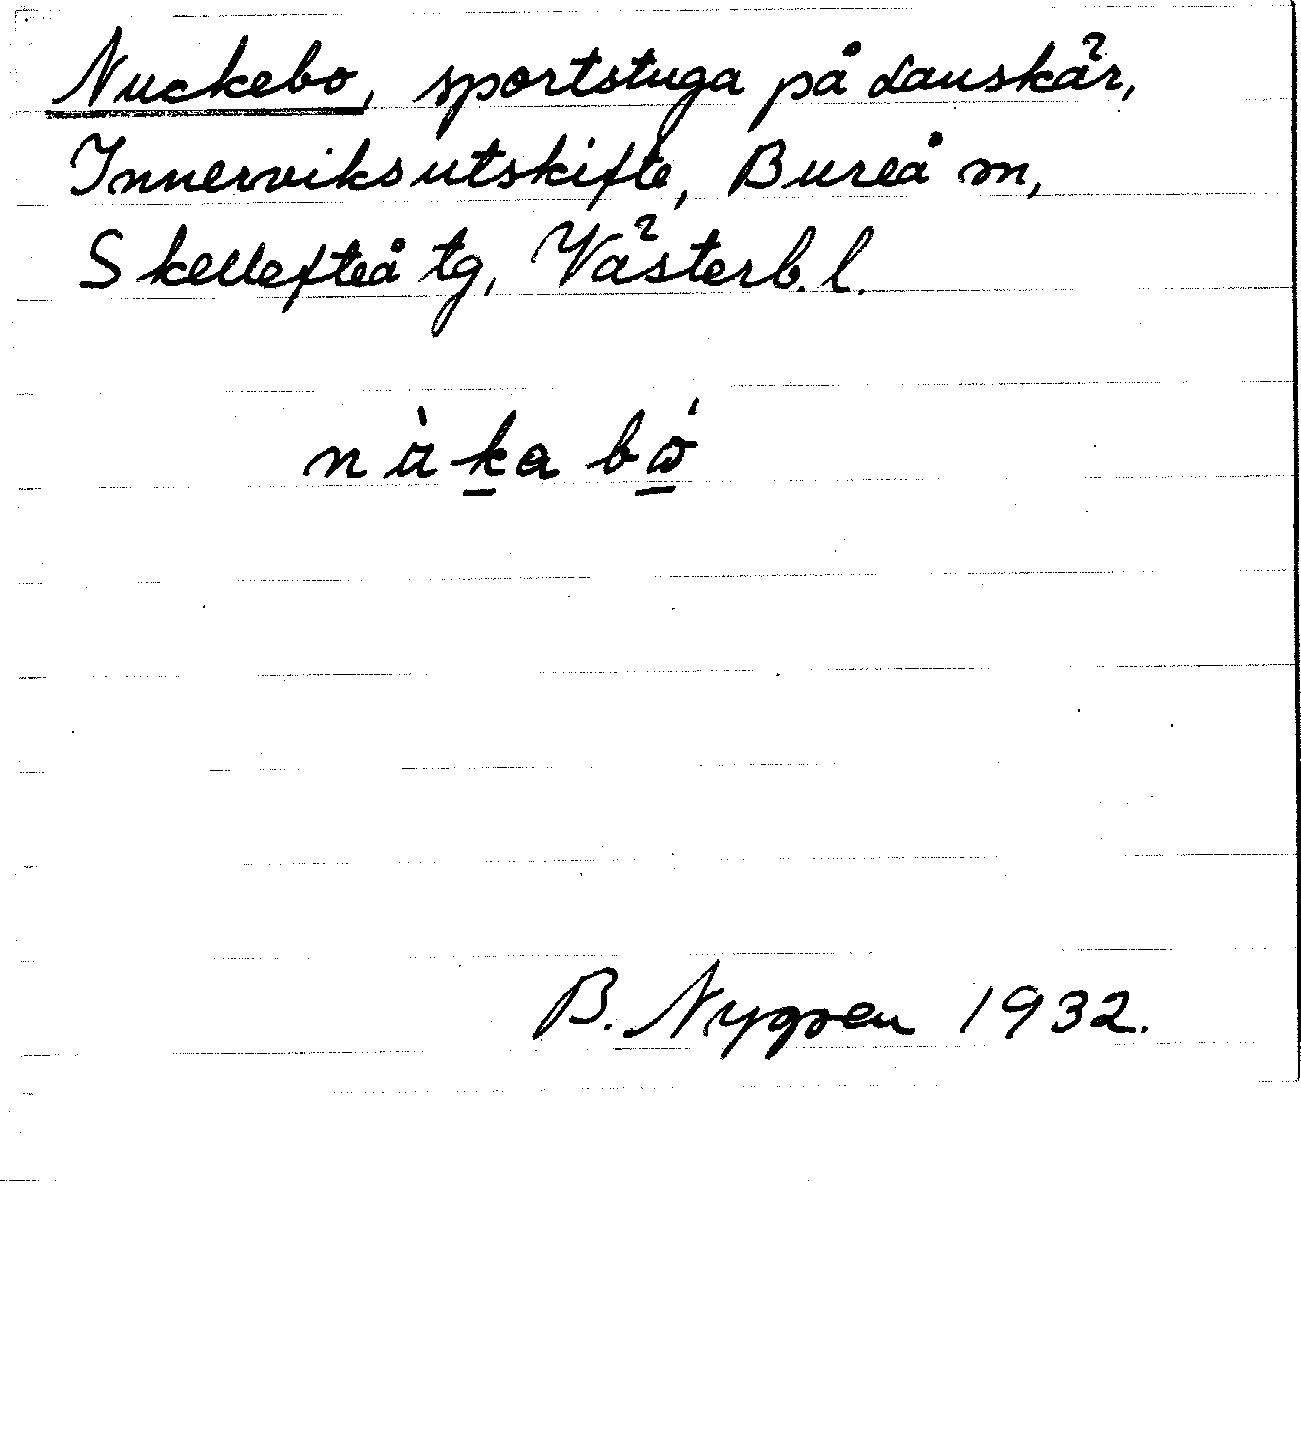 Nuckebo, sportstuga på Lauskär,
Innerviks utskifte, Bureå m,
Skellefteå tg, Västerb. l.
B. Nygren 1932.